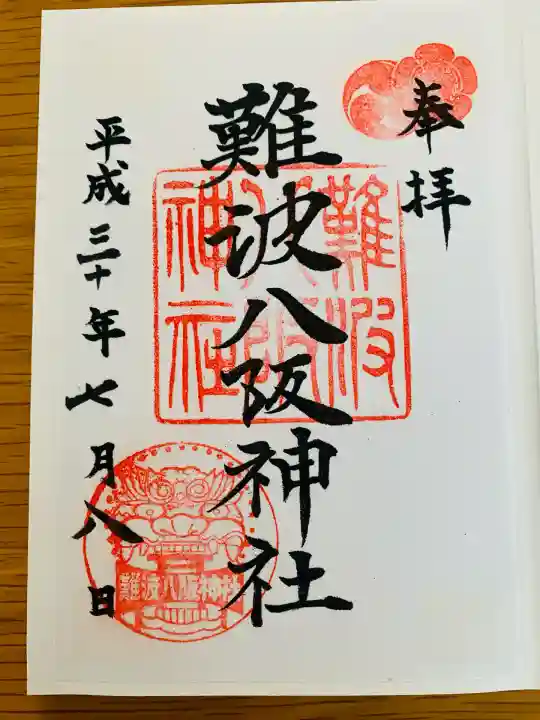 奉拝
難波八阪神社
難波八阪神社
平成三十年七月八日
難波八阪神社